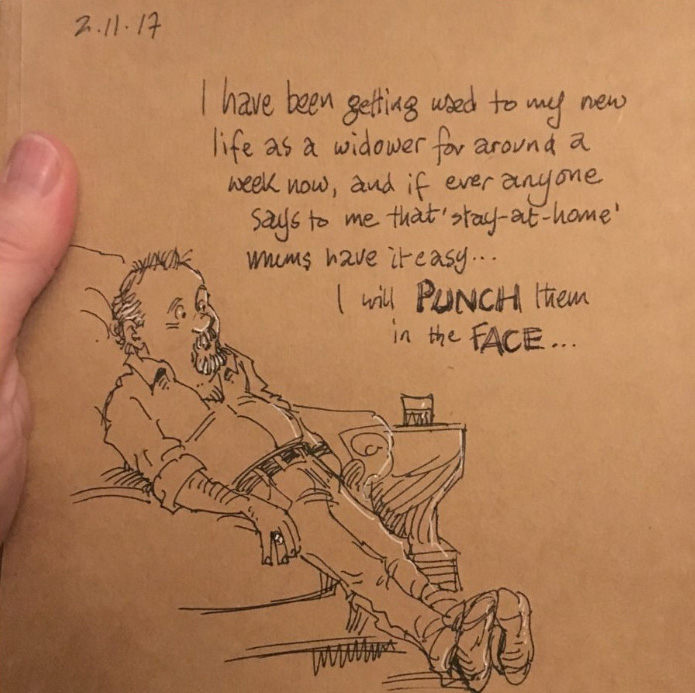 2.11.17
I have been getting used to my new
life as a widower for around a
week now, and if ever anyone
says to me that 'stay-at-home'
mums have it easy...
I will PUNCH them
in the FACE...